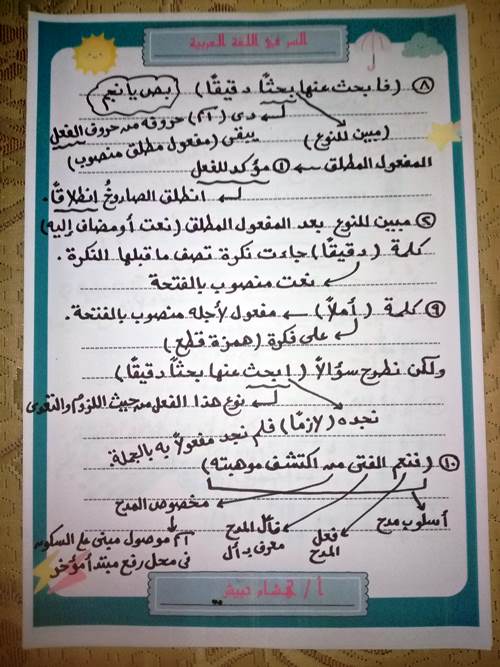 السر في اللغة العربية
٨ (فابحث عنها بحثاً دقيقاً) بص يا نجم
دى (آم) حروفه من حروف الفعل
(مبين للنوع) يبقى (مفعول مطلق منصوب)
المفعول المطلق ← ① مؤكد للفعل
انطلق الصاروخُ انطلاقاً.
② مبين للنوع بعد المفعول المطلق (نعت أو مضاف إليه)
كلمة (دقيقاً) جاءت نكرة تصف ما قبلها النكرة.
نعت منصوب بالفتحة
٩ كلمة (أملاً) ← مفعول لأجله منصوب بالفتحة.
على فكرة (همزة قطع)
ولكن نطرح سؤالاً (ابحث عنها بحثاً دقيقاً)
نوع هذا الفعل من حيث اللزوم والتعدى
نجده (لازمًا) فلم نجد مفعولاً به بالجملة.
١٠ (فنعم الفتى من اكتشف موهبته)
مخصوص المدح
أسلوب مدح فعل المدح فاعل المدح معرف بـ أل
آم موصول مبنى على السكون
فى محل رفع مبتدأ مؤخر
أ /